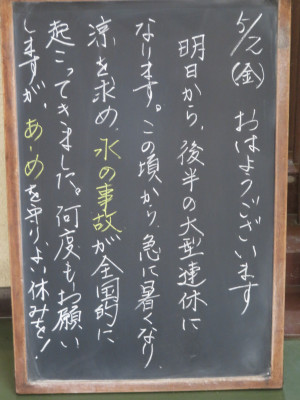 5/2(金) おはようございます
明日から、後半の大型連休に
なります。この頃から、急に暑くなり、
涼を求め、水の事故が全国的に
起こってきました。何度もお願い
しますが、あ〜めを守り、よい休みを!